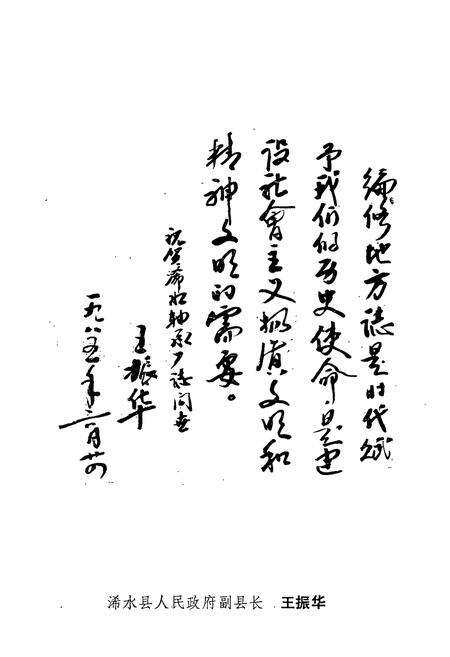 编修地方誌是时代赋
予我们的历史使命，是建
设社会主义物质文明和
精神文明的需要。
祝贺浠水轴承厂志问世
王振华
一九八五年三月廿四
浠水县人民政府副县长 王振华